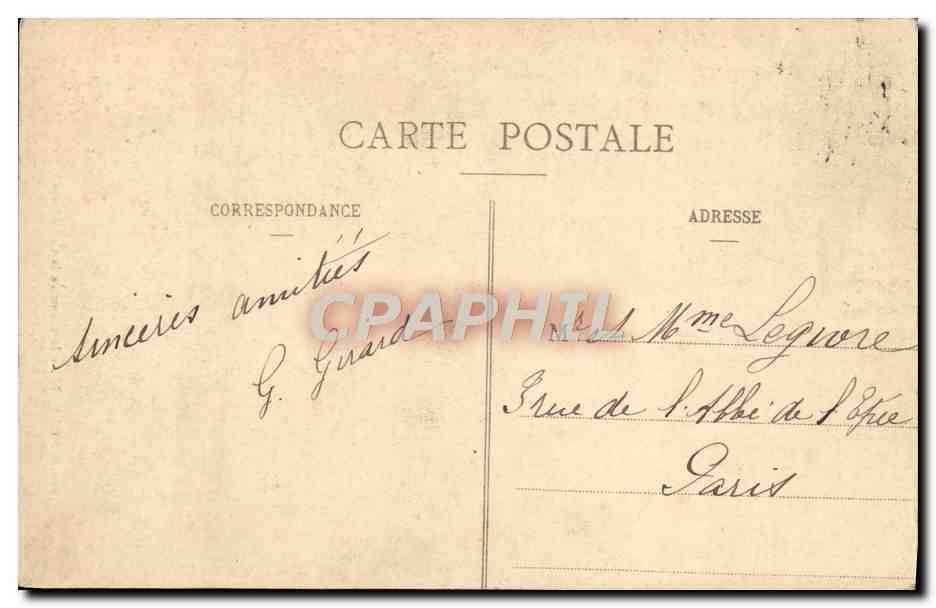 CARTE POSTALE
CORRESPONDANCE
ADRESSE
Sincères amitiés
G. Girard
CPAPHIL
Mr & Mme Legivre
3 rue de l'Abbé de l'Epée
Paris